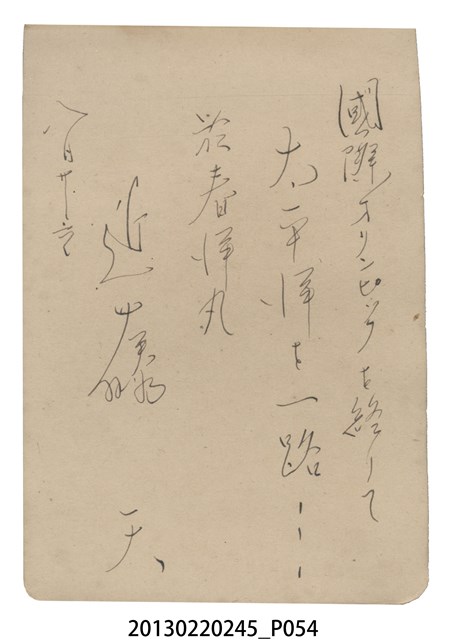 國際オリンピックを終へて
太平洋を一路ーー
於春洋丸
近藤 天
八月廿六日
20130220245_P054